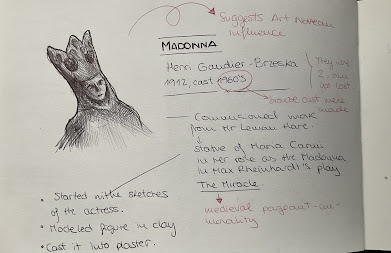 Suggests Art Nouveau
influence
MADONNA
Henri Gaudier-Brzeska
1912, cast 1960's
They were
2, one
got lost.
bronze cast were
made
Commissioned work
from Mr Leman Hare.
statue of Maria Carmi
in her role as the Madonna
in Max Rheinhardt's play
The Miracle.
medieval pageant-cum-
morality
• Started with sketches
of the actress.
• Modeled figure in clay
• Cast it into plaster.